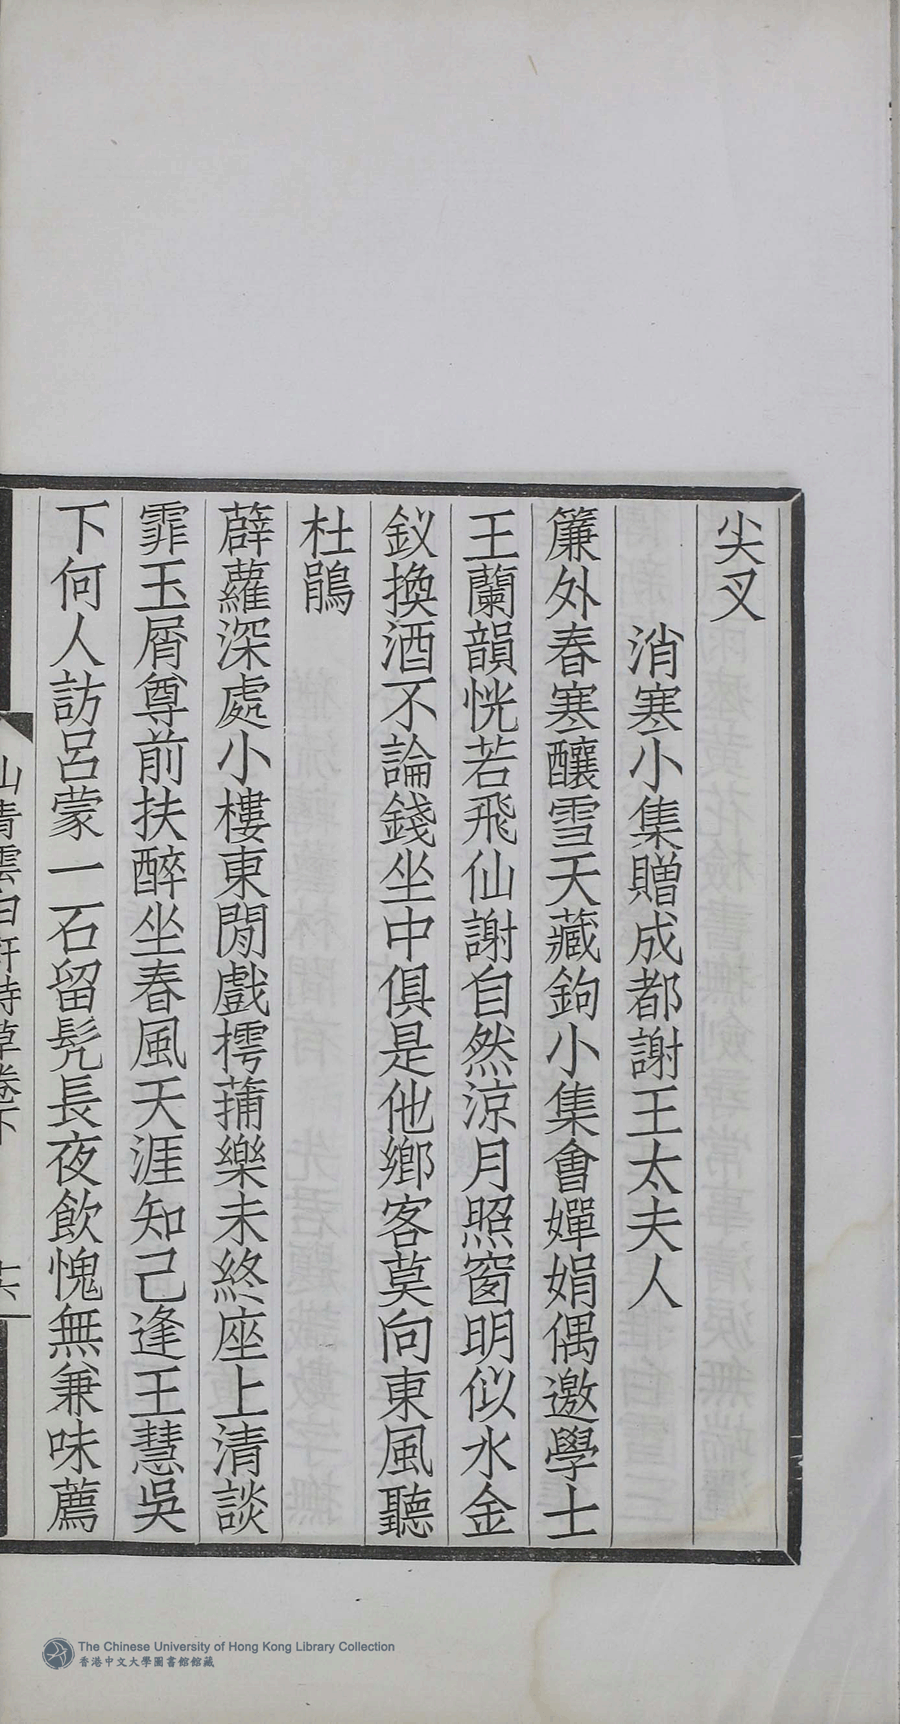 尖叉
消寒小集贈成都謝王太夫人
簾外春寒釀雪天藏鉤小集會嬋娟偶邀學士
王蘭韻恍若飛仙謝自然涼月照窗明似水金
釵換酒不論錢坐中俱是他鄉客莫向東風聽
杜鵑
薜蘿深處小樓東閒戲摴蒱樂未終座上清談
霏玉屑尊前扶醉坐春風天涯知己逢王慧吳
下何人訪呂蒙一石留髡長夜飲愧無兼味薦
山青雲白軒詩草卷下
十六
The Chinese University of Hong Kong Library Collection
香港中文大學圖書館館藏